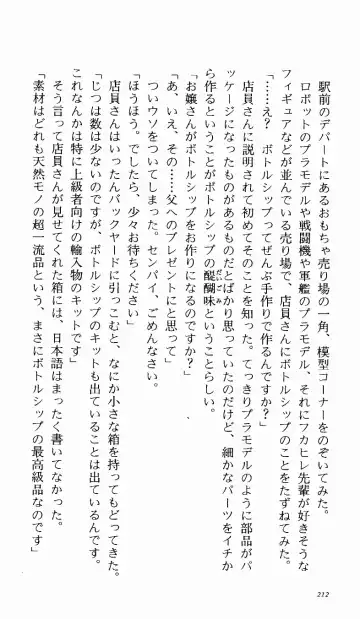 駅前のデパートにあるおもちゃ売り場の一角、模型コーナーをのぞいてみた。
ロボットのプラモデルや戦闘機や軍艦のプラモデル、それにフカヒレ先輩が好きそうな
フィギュアなどが並んでいる売り場で、店員さんにボトルシップのことをたずねてみた。
「……え？　ボトルシップってぜんぶ手作りで作るんですか？」
店員さんに説明されて初めてそのことを知った。てっきりプラモデルのように部品がパ
ッケージになったものがあるものだとばかり思っていたのだけど、細かなパーツをイチか
ら作るということがボトルシップの醍醐味ということらしい。
「お嬢さんがボトルシップをお作りになるのですか？」
「あ、いえ、その……父へのプレゼントにと思って」
ついウソをついてしまった。センパイ、ごめんなさい。
「ほうほう。でしたら、少々お待ちください」
店員さんはいったんバックヤードに引っこむと、なにか小さな箱を持ってもどってきた。
「じつは数は少ないのですが、ボトルシップのキットも出ていることは出ているんです。
これなんかは特に上級者向けの輸入物のキットです」
そう言って店員さんが見せてくれた箱には、日本語はまったく書いてなかった。
「素材はどれも天然モノの超一流品という、まさにボトルシップの最高級品なのです」
212